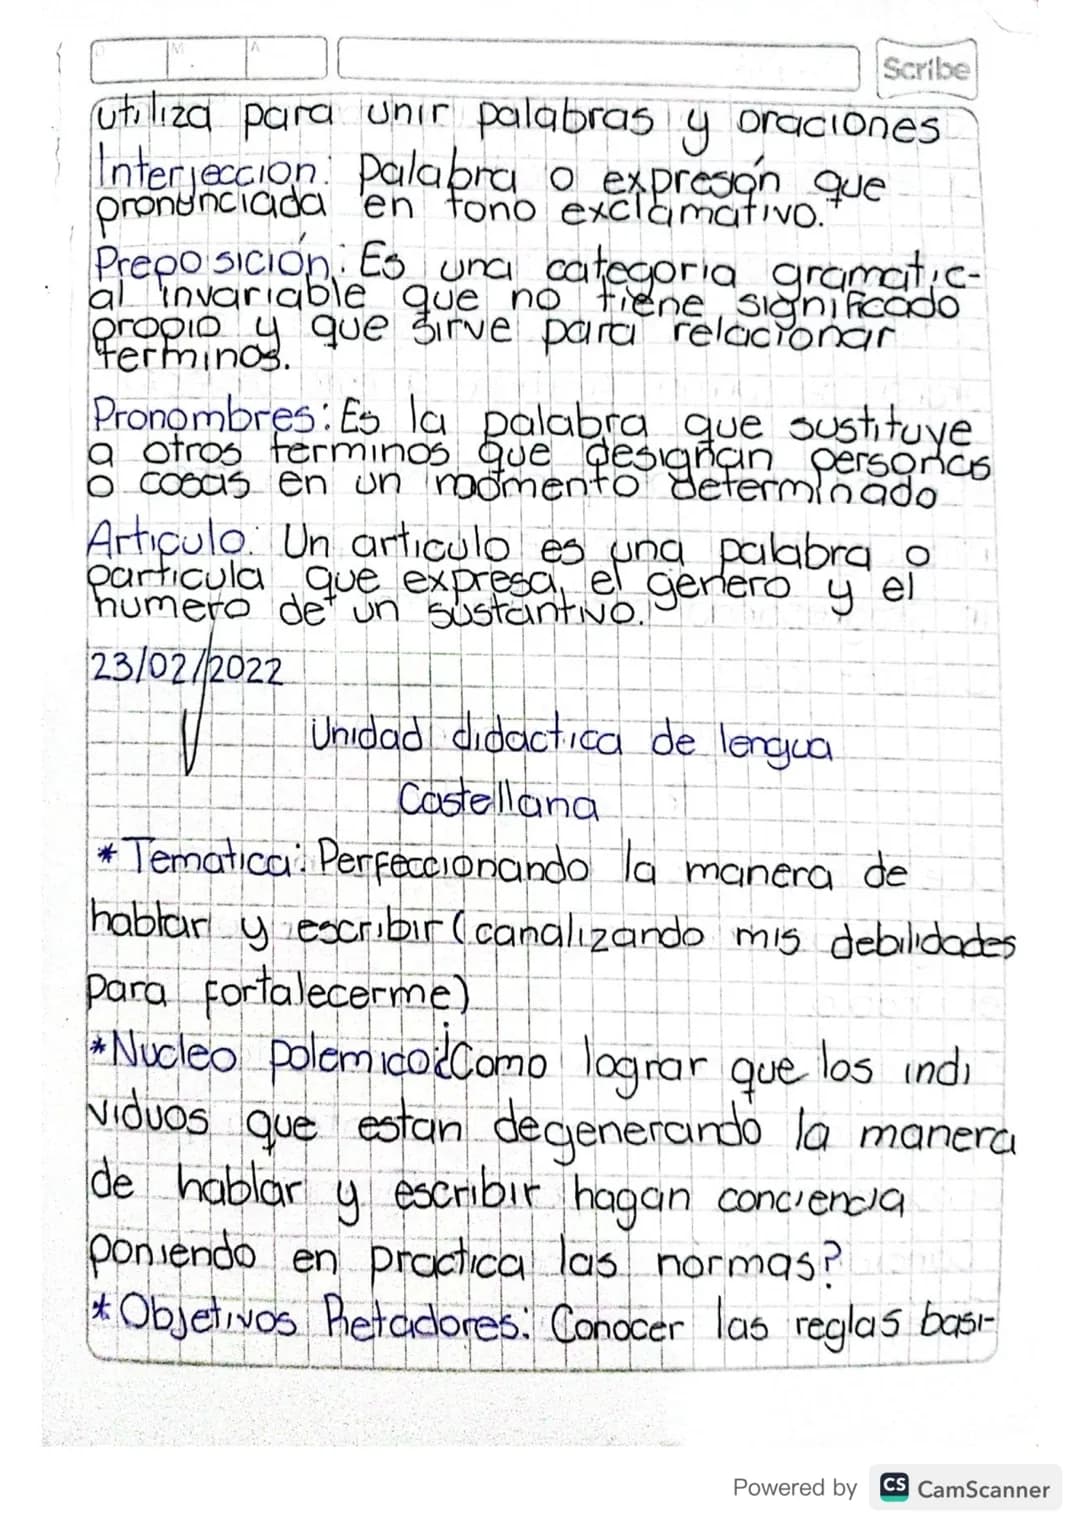 M A
Scribe
utiliza para unir palabras y oraciones
Interjeccion: Palabra o expresón que
pronunciada en tono exclamativo.
Preposición: Es una categoria gramatic-
al invariable que no tiene significado
propio y que sirve para relacionar
terminos.
Pronombres: Es la palabra que sustituye
a otros terminos que designan personas
o cosas en un momento determinado
Articulo: Un articulo es una palabra o
particula que expresa el genero y el
numero de un sustantivo.
23/02/2022
Unidad didactica de lengua
Castellana
* Tematica: Perfeccionando la manera de
hablar y escribir (canalizando mis debilidades
para fortalecerme)
* Nucleo polemico: ¿Como lograr que los indi
viduos que estan degenerando la manera
de hablar y escribir hagan conciencia
poniendo en practica las normas?
* Objetivos Retadores: Conocer las reglas basi-
Powered by CS CamScanner